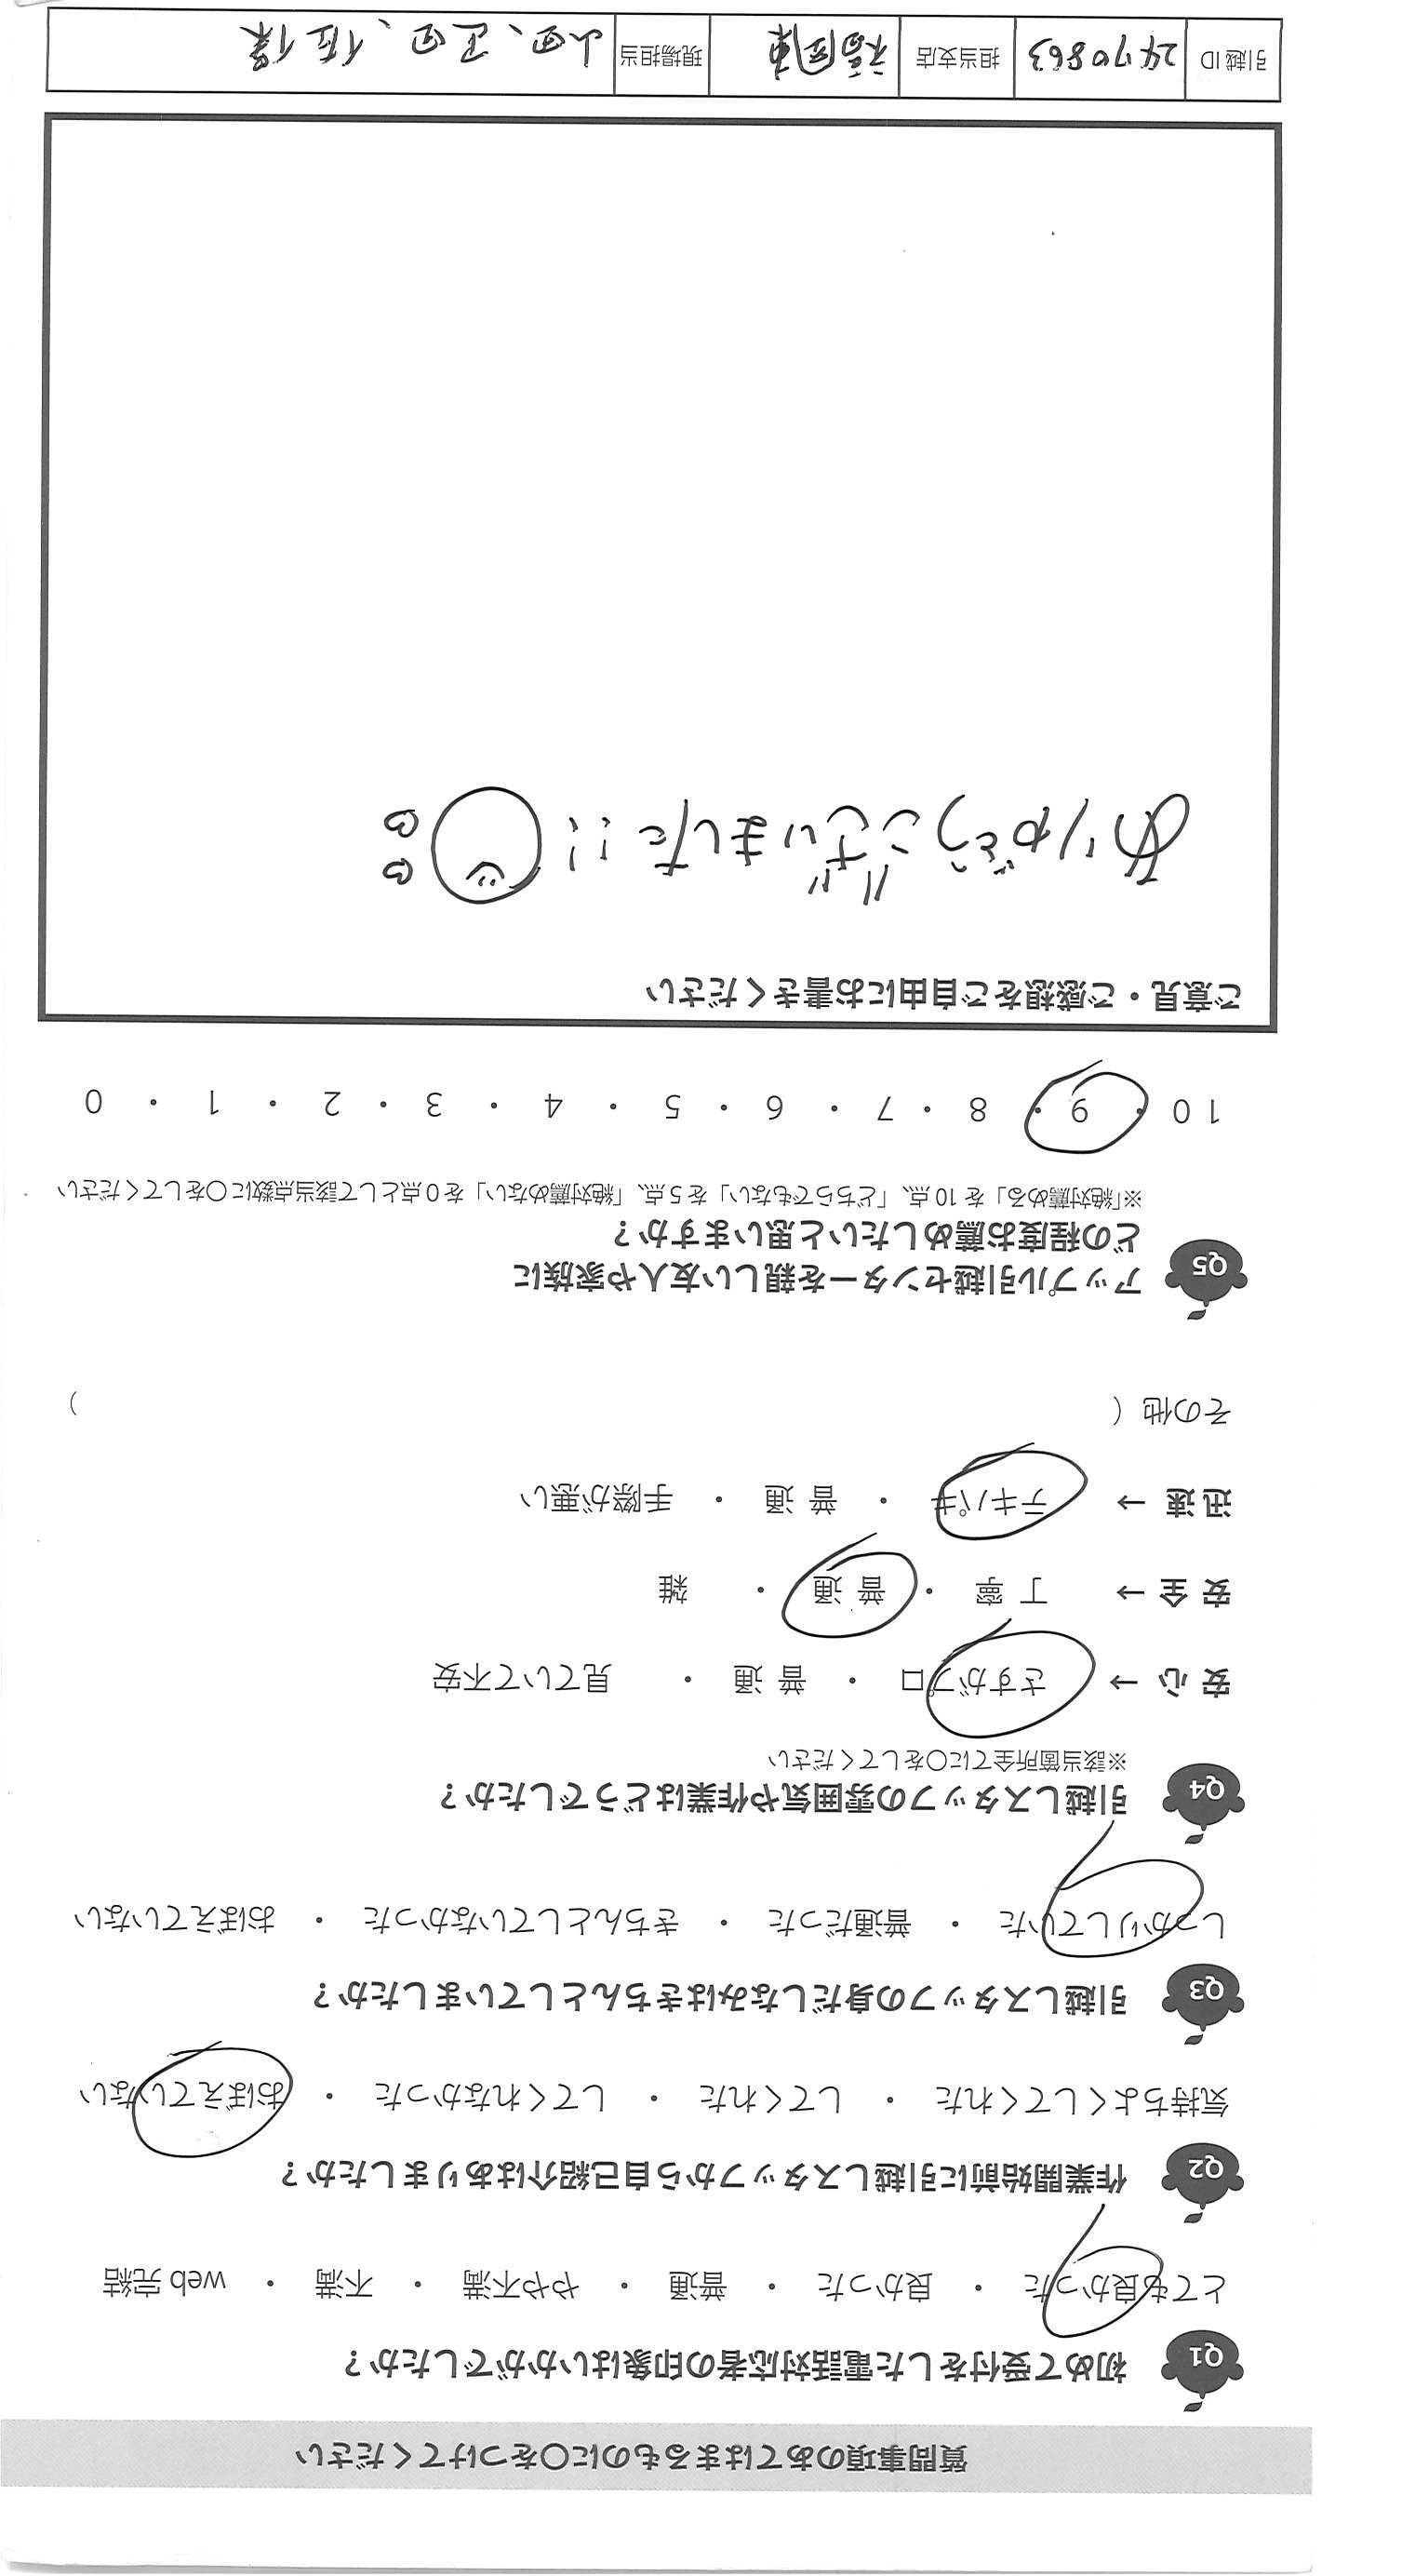 質問事項のあてはまるものに〇をつけてください
Q1 初めて受付をした電話対応者の印象はいかがでしたか？
とても良かった ・ 良かった ・ 普通 ・ やや不満 ・ 不満 ・ web 完結
Q2 作業開始前に引越しスタッフから自己紹介はありましたか？
気持ちよくしてくれた ・ してくれた ・ してくれなかった ・ おぼえていない
Q3 引越しスタッフの身だしなみはきちんとしていましたか？
しっかりしていた ・ 普通だった ・ きちんとしていなかった ・ おぼえていない
Q4 引越しスタッフの雰囲気や作業はどうでしたか？
※該当箇所全てに〇をしてください
安 心 → さすがプロ ・ 普 通 ・ 見ていて不安
安 全 → 丁 寧 ・ 普 通 ・ 雑
迅 速 → テキパキ ・ 普 通 ・ 手際が悪い
その他（ ）
Q5 アップル引越センターを親しい友人や家族に
どの程度お薦めしたいと思いますか？
※「絶対薦める」を 10 点、「どちらでもない」を 5 点、「絶対薦めない」を 0 点として該当点数に〇をしてください
10 ・ 9 ・ 8 ・ 7 ・ 6 ・ 5 ・ 4 ・ 3 ・ 2 ・ 1 ・ 0
ご意見・ご感想をご自由にお書きください
ありがとうございました!!
引越 ID 2470863 担当支店 福岡東 現場担当 山田、正田、佐保